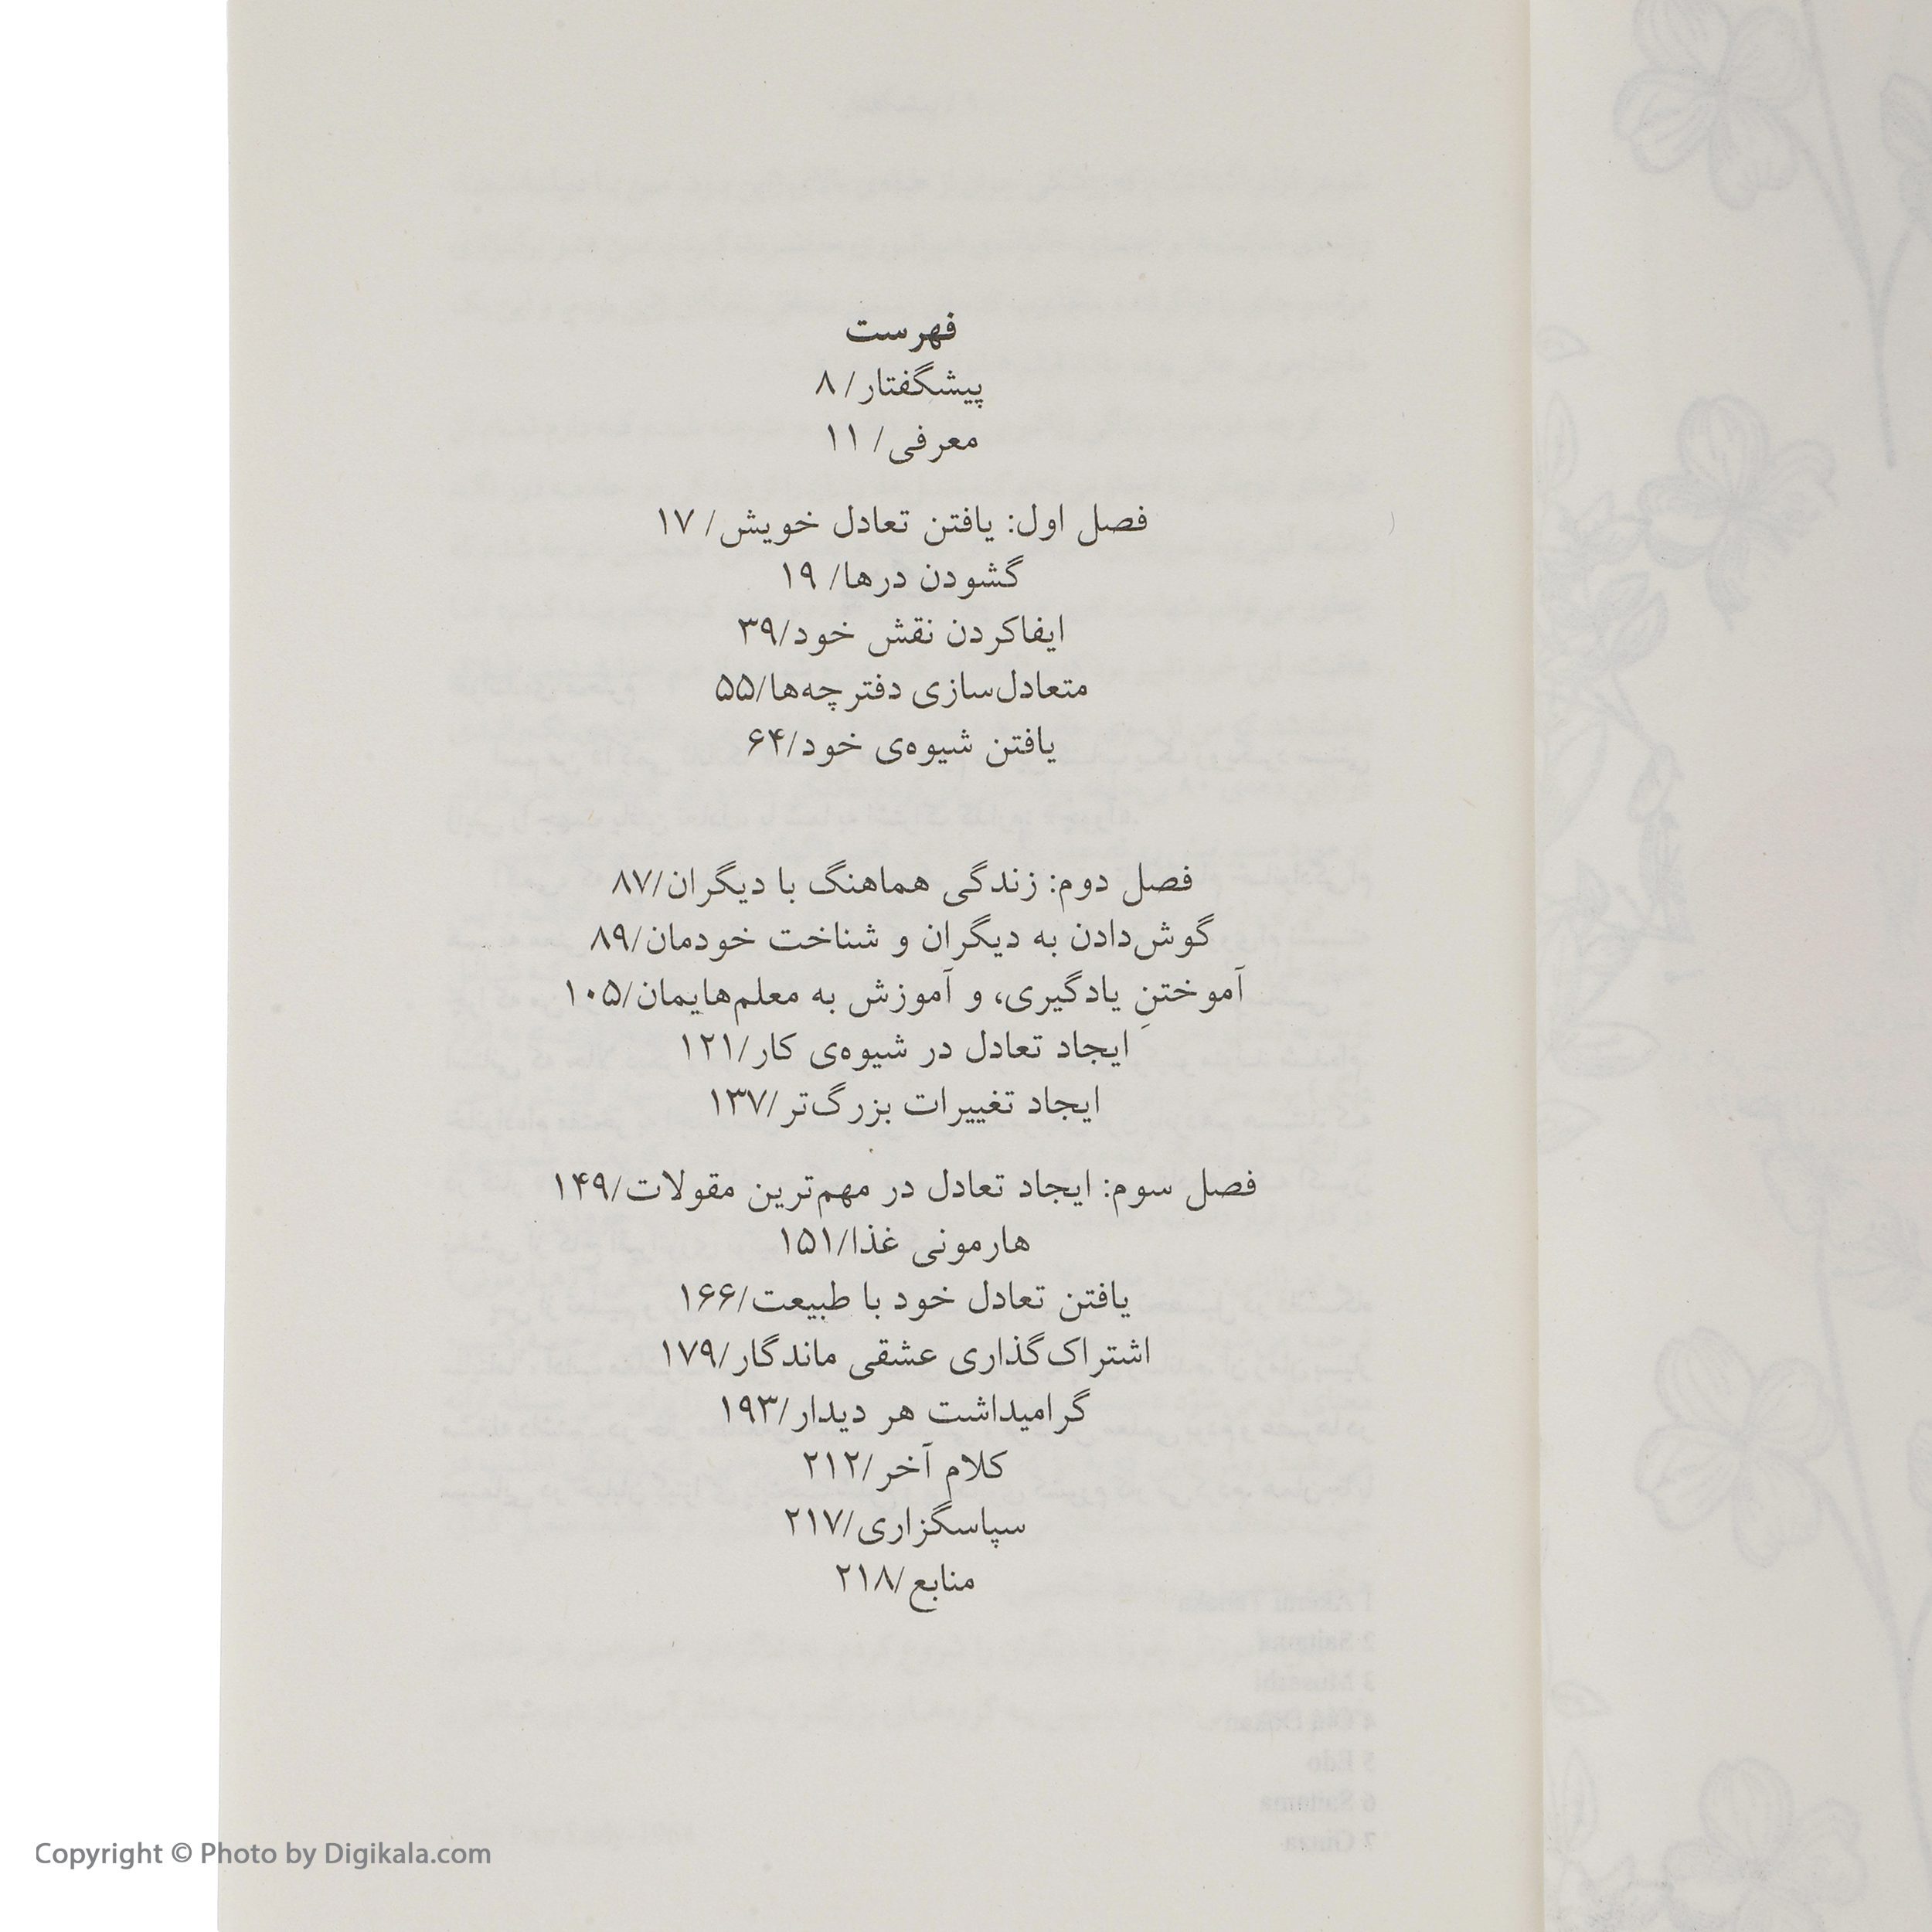 فهرست
پیشگفتار/ ۸
معرفی/ ۱۱
فصل اول: یافتن تعادل خویش/ ۱۷
گشودن درها/ ۱۹
ایفاکردن نقش خود/۳۹
متعادل‌سازی دفترچه‌ها/۵۵
یافتن شیوه‌ی خود/۶۴
فصل دوم: زندگی هماهنگ با دیگران/۸۷
گوش‌دادن به دیگران و شناخت خودمان/۸۹
آموختنِ یادگیری، و آموزش به معلم‌هایمان/۱۰۵
ایجاد تعادل در شیوه‌ی کار/۱۲۱
ایجاد تغییرات بزرگ‌تر/۱۳۷
فصل سوم: ایجاد تعادل در مهم‌ترین مقولات/۱۴۹
هارمونی غذا/۱۵۱
یافتن تعادل خود با طبیعت/۱۶۶
اشتراک‌گذاری عشقی ماندگار/۱۷۹
گرامیداشت هر دیدار/۱۹۳
کلام آخر/۲۱۲
سپاسگزاری/۲۱۷
منابع/۲۱۸
Copyright © Photo by Digikala.com